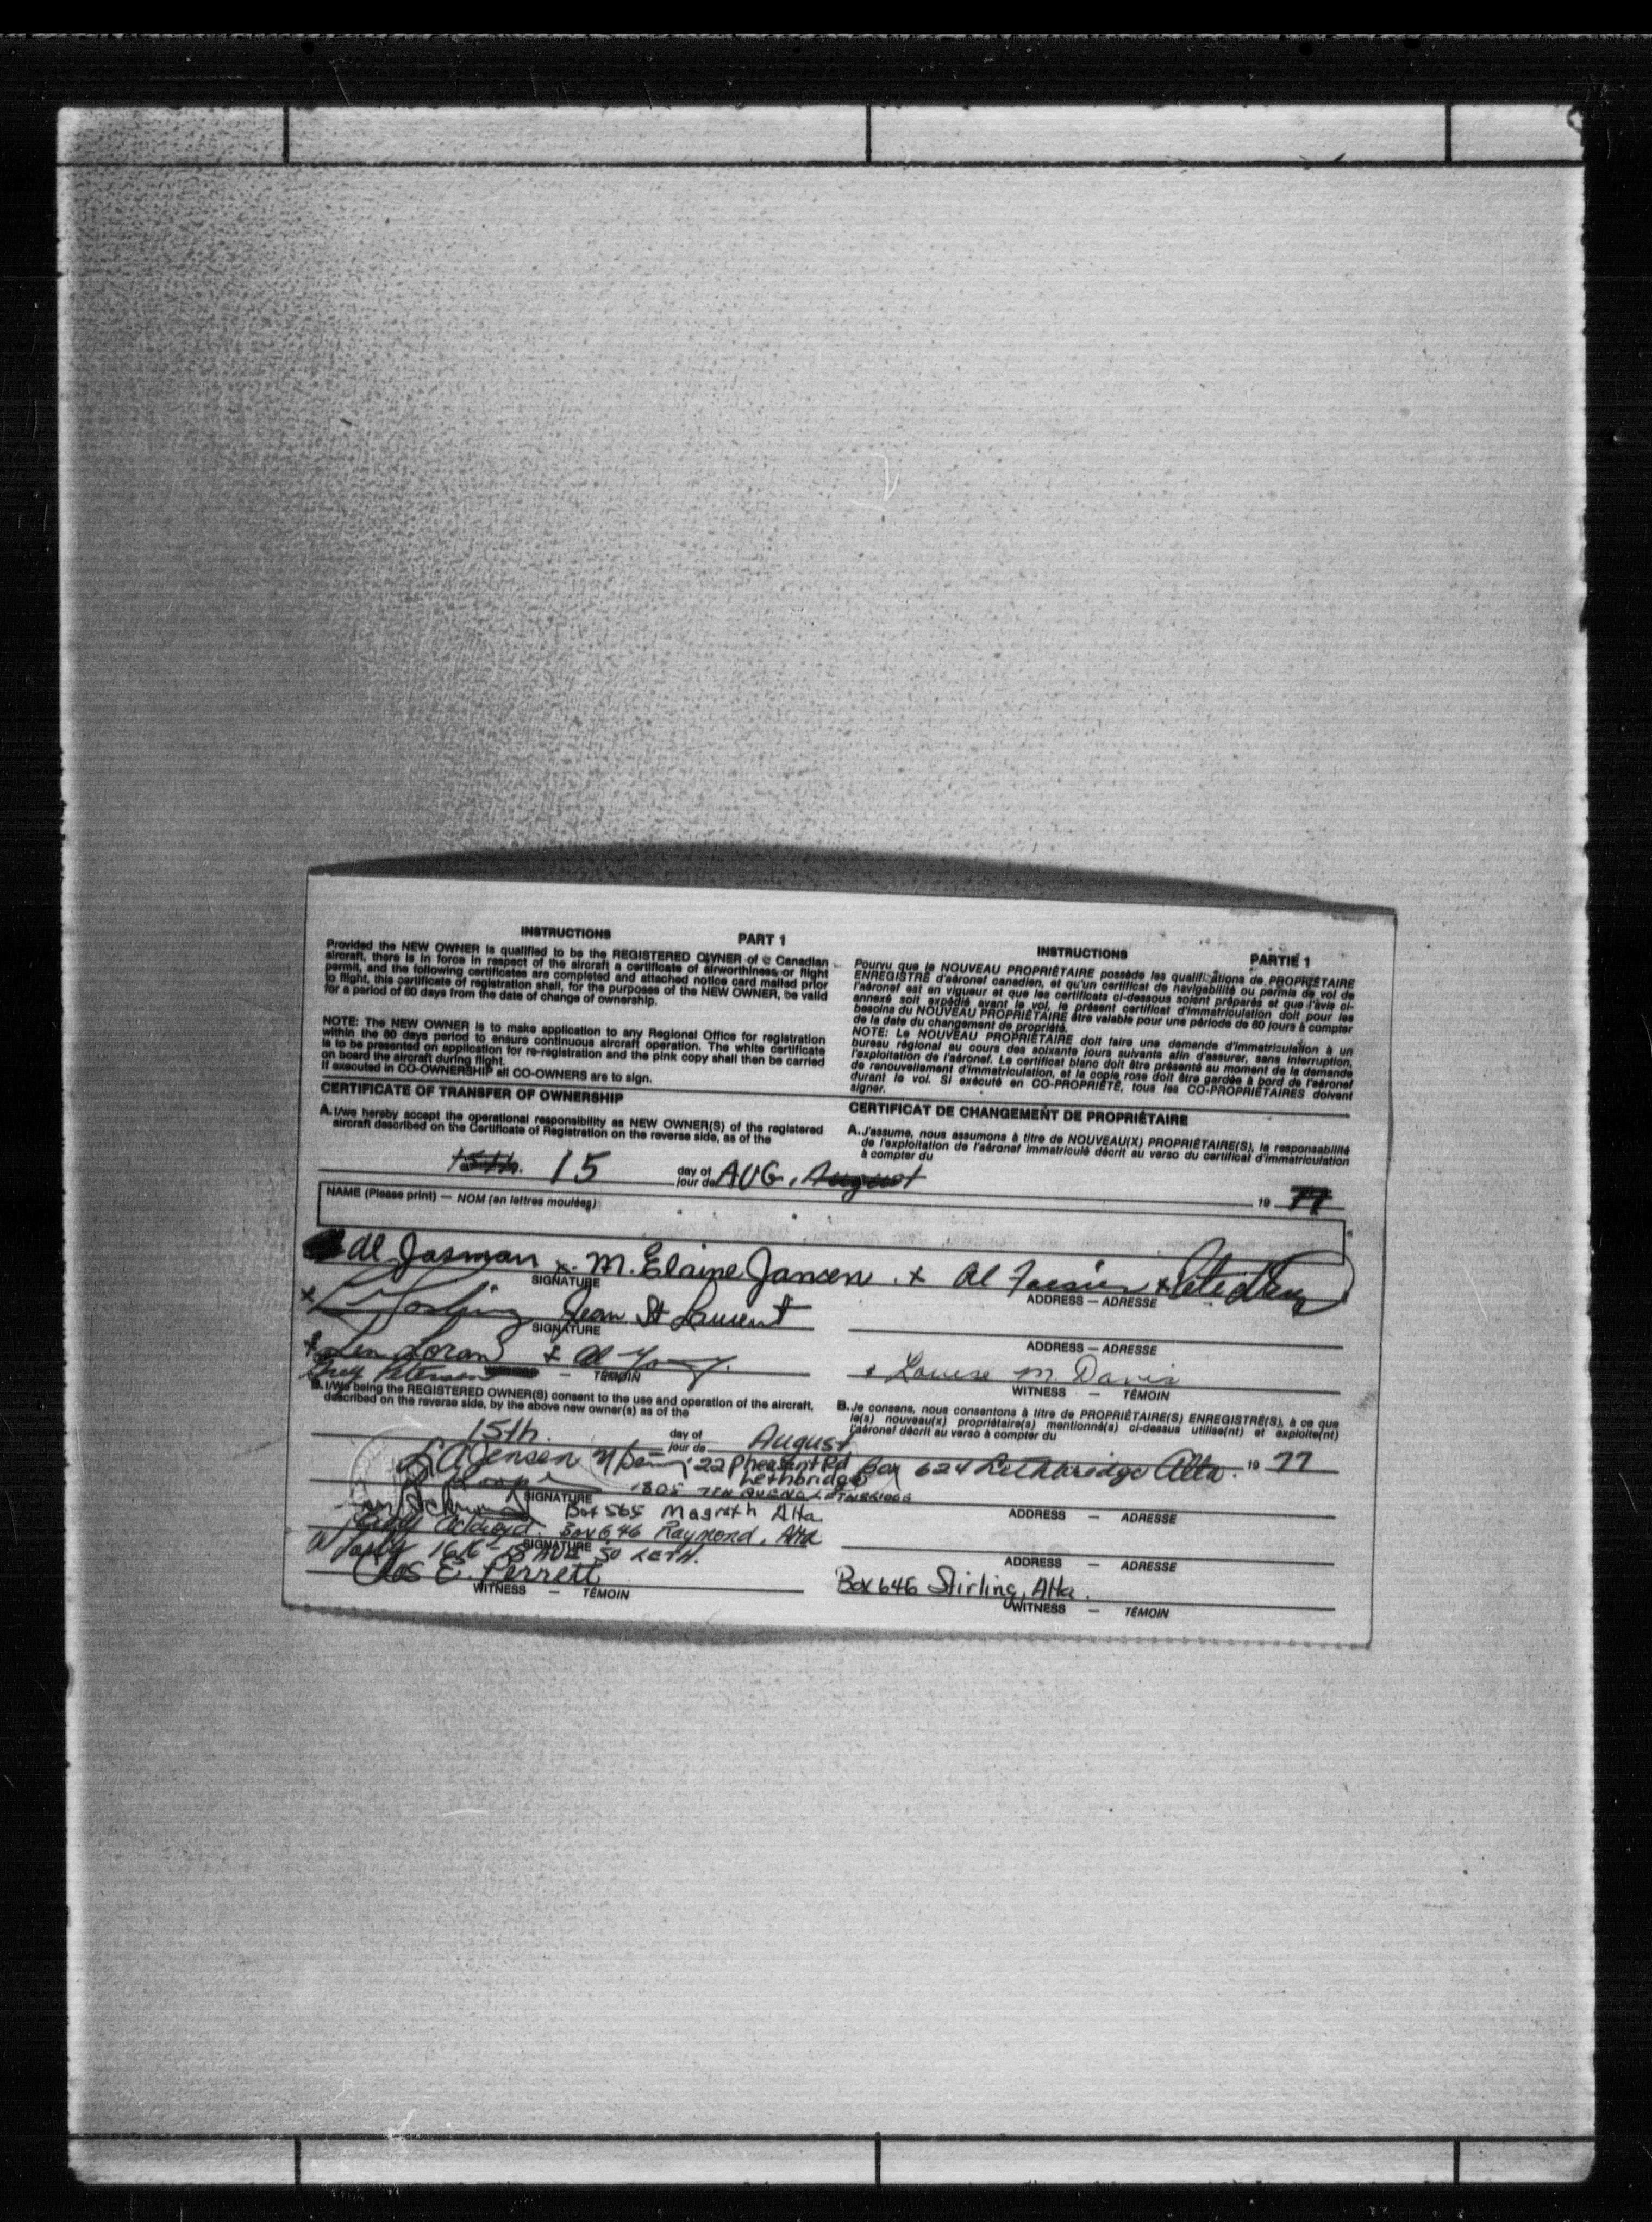 INSTRUCTIONS PART 1
Provided the NEW OWNER is qualified to be the REGISTERED OWNER of a Canadian
aircraft, there is in force in respect of the aircraft a certificate of airworthiness or flight
permit, and the following certificates are completed and attached notice card mailed prior
to flight, this certificate of registration shall, for the purposes of the NEW OWNER, be valid
for a period of 60 days from the date of change of ownership.
NOTE: The NEW OWNER is to make application to any Regional Office for registration
within the 60 days period to ensure continuous aircraft operation. The white certificate
is to be presented on application for re-registration and the pink copy shall then be carried
on board the aircraft during flight.
If executed in CO-OWNERSHIP all CO-OWNERS are to sign.
INSTRUCTIONS PARTIE 1
Pourvu que le NOUVEAU PROPRIÉTAIRE possède les qualifications de PROPRIÉTAIRE
ENREGISTRÉ d'aéronef canadien, et qu'un certificat de navigabilité ou permis de vol de
l'aéronef est en vigueur et que les certificats ci-dessous soient préparés et que l'avis ci-
annexé soit expédié avant le vol, le présent certificat d'immatriculation doit pour les
besoins du NOUVEAU PROPRIÉTAIRE être valable pour une période de 60 jours à compter
de la date du changement de propriété.
NOTE: Le NOUVEAU PROPRIÉTAIRE doit faire une demande d'immatriculation à un
bureau régional au cours des soixante jours suivants afin d'assurer, sans interruption,
l'exploitation de l'aéronef. Le certificat blanc doit être présenté au moment de la demande
de renouvellement d'immatriculation, et la copie rose doit être gardée à bord de l'aéronef
durant le vol. Si exécuté en CO-PROPRIÉTÉ, tous les CO-PROPRIÉTAIRES doivent
signer.
CERTIFICATE OF TRANSFER OF OWNERSHIP
A. I/we hereby accept the operational responsibility as NEW OWNER(S) of the registered
aircraft described on the Certificate of Registration on the reverse side, as of the
CERTIFICAT DE CHANGEMENT DE PROPRIÉTAIRE
A. J'assume, nous assumons à titre de NOUVEAU(X) PROPRIÉTAIRE(S), la responsabilité
de l'exploitation de l'aéronef immatriculé décrit au verso du certificat d'immatriculation
à compter du
15th. 15 day of jour de AUG. August 19 77
NAME (Please print) — NOM (en lettres moulées)
Al Jasman x M. Elaine Jansen x Al
SIGNATURE ADDRESS — ADRESSE
x Jean St Laurent
SIGNATURE ADDRESS — ADRESSE
x Len Loran x Al x Louise M. Davis
Peterson — TÉMOIN WITNESS — TÉMOIN
B. I/We being the REGISTERED OWNER(S) consent to the use and operation of the aircraft,
described on the reverse side, by the above new owner(s) as of the
B. Je consens, nous consentons à titre de PROPRIÉTAIRE(S) ENREGISTRÉ(S), à ce que
le(s) nouveau(x) propriétaire(s) mentionné(s) ci-dessus utilise(nt) et exploite(nt)
l'aéronef décrit au verso à compter du
15th. day of jour de August 19 77
L A Jensen 22 Pheasant Rd Box 624 Lethbridge Alta.
Lethbridge
1805 LETHBRIDGE
SIGNATURE ADDRESS — ADRESSE
Box 565 Magrath Alta
Box 646 Raymond, Alta
SIGNATURE ADDRESS — ADRESSE
1616 - 15 AVE SO LETH.
Chas E. Perrett Box 646 Stirling, Alta.
WITNESS — TÉMOIN WITNESS — TÉMOIN